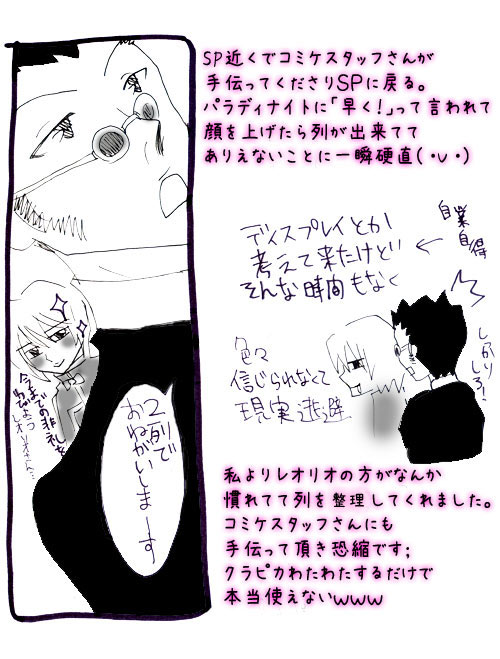 SP近くでコミケスタッフさんが
手伝ってくださりSPに戻る。
パラディナイトに「早く！」って言われて
顔を上げたら列が出来てて
ありえないことに一瞬硬直(・∪・)
自業
自得
ディスプレイとか
考えて来たけど
そんな時間もなく
しっかり
しろ！
色々
信じられなくて
現実逃避
2列で
おねがいしまーす
今までの非礼を
わびよう
レオリオさん…
私よりレオリオの方がなんか
慣れてて列を整理してくれました。
コミケスタッフさんにも
手伝って頂き恐縮です；
クラピカわたわたするだけで
本当使えないwww